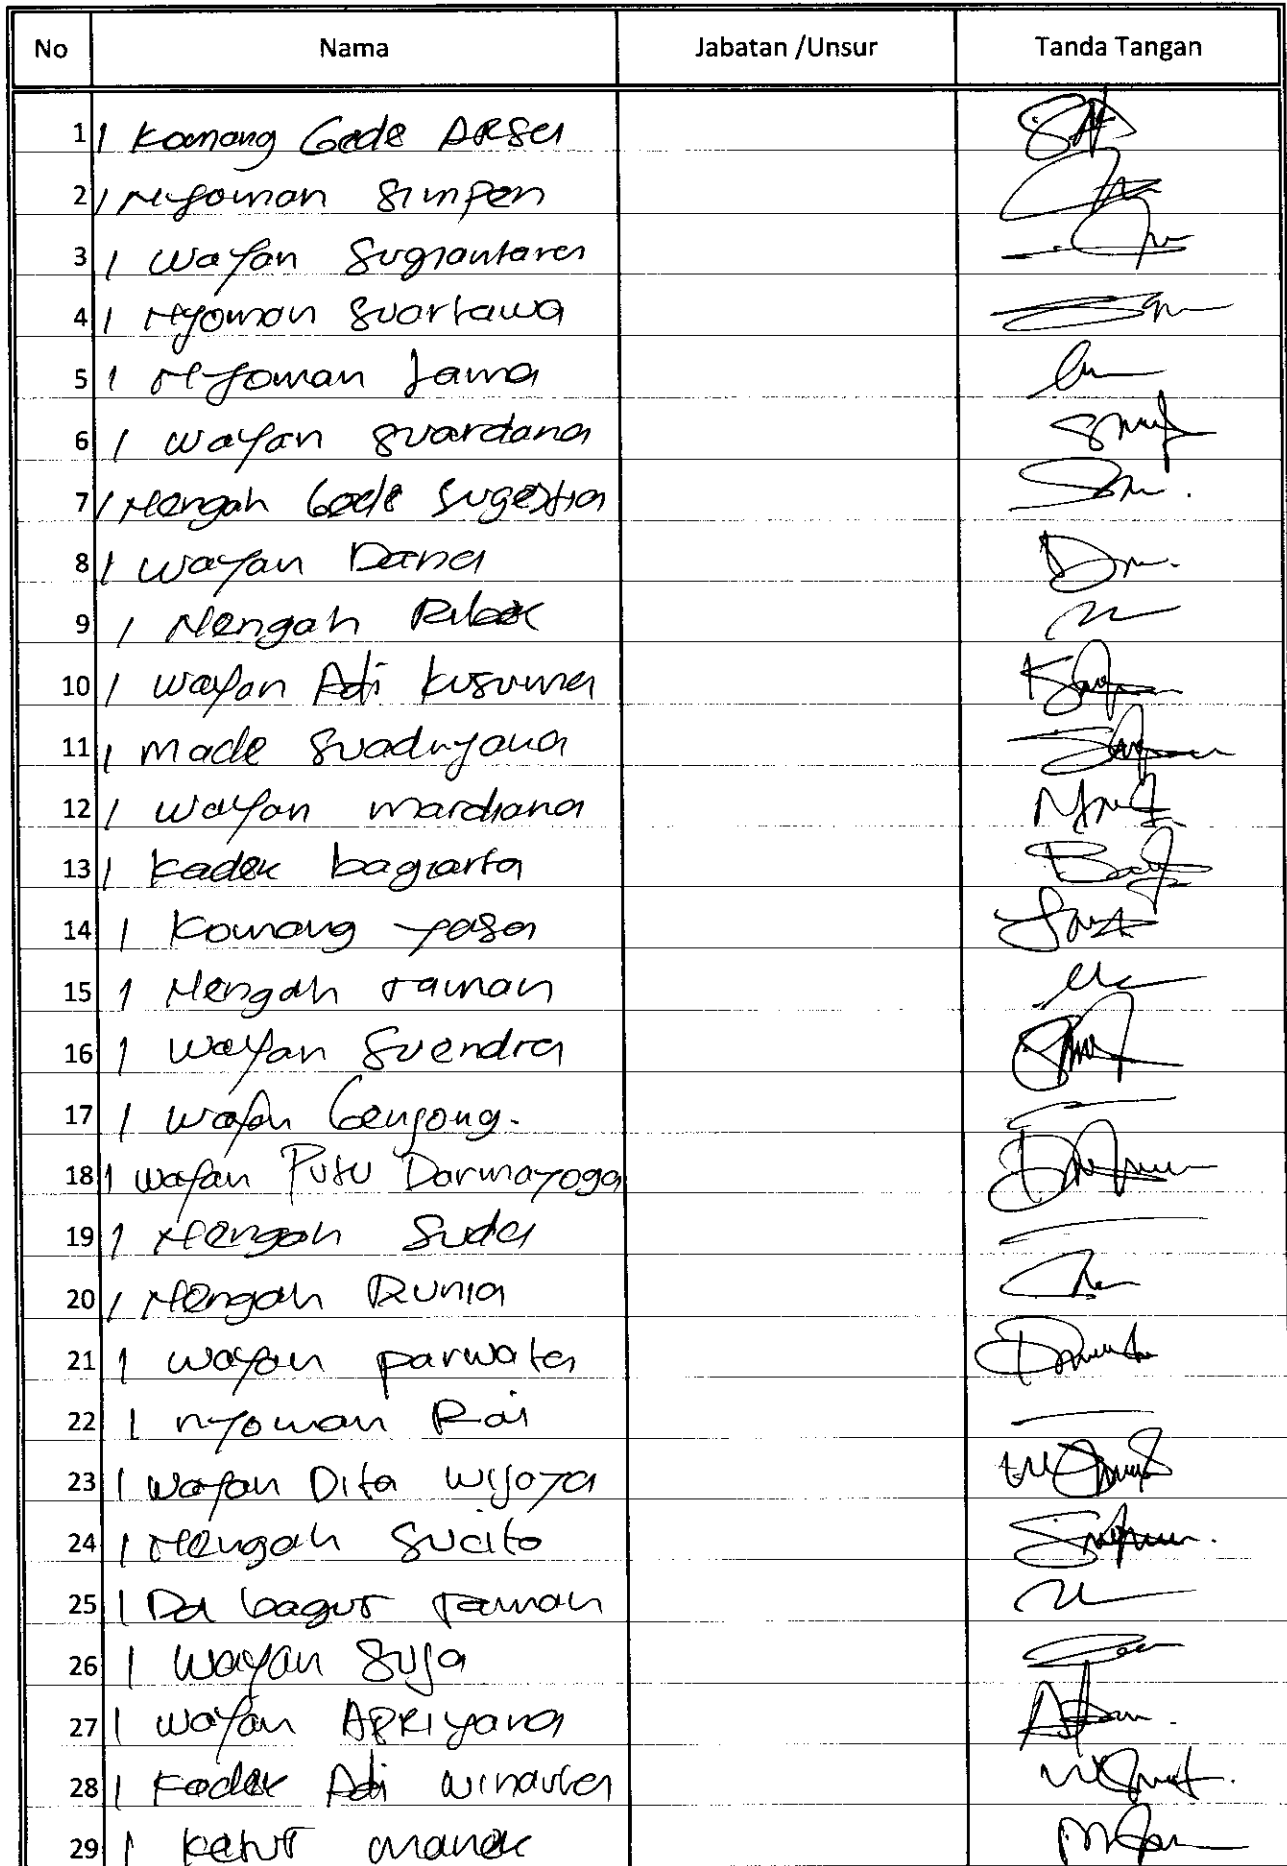 No Nama Jabatan /Unsur Tanda Tangan
1 I Komang Gede ARSA
2 I Nyoman Simpen
3 I Wayan Sugiantara
4 I Nyoman Suartawa
5 I Nyoman Jama
6 I Wayan Suardana
7 I Nengah Gede Sugestia
8 I Wayan Dana
9 I Nengah
10 I Wayan Adi Kusuma
11 I Made Suadnyana
12 I Wayan Mardiana
13 I Kadek bagiarta
14 I Komang Yasa
15 I Nengah Taman
16 I Wayan Suendra
17 I Wayan Genjong.
18 I Wayan Putu Darmayoga
19 I Nengah Suda
20 I Nengah Runia
21 I Wayan parwata
22 I nyoman Rai
23 I Wayan Dita Wijaya
24 I Nengah Sucita
25 I Da bagus Taman
26 I Wayan Suja
27 I Wayan APRIyana
28 I Kadek Adi Winarta
29 I Ketut manak